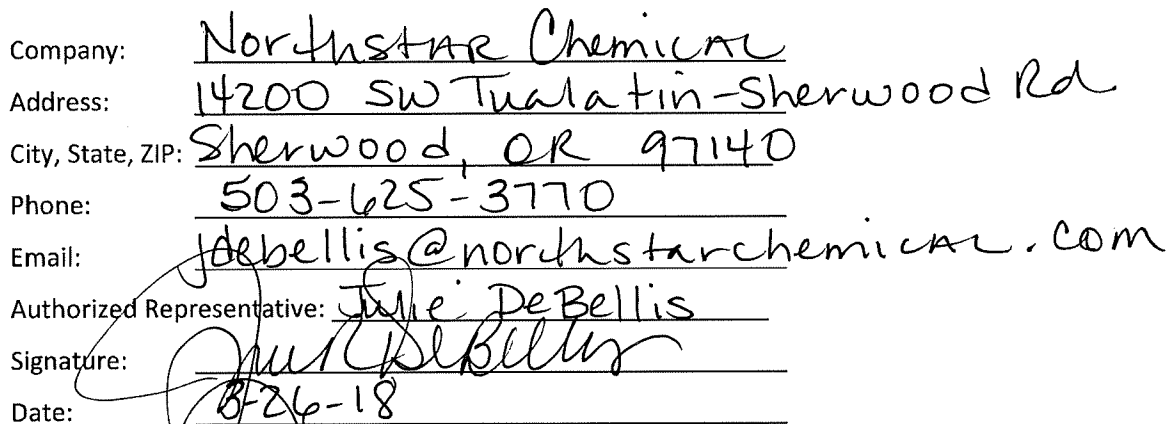 Company: Northstar Chemical
Address: 14200 SW Tualatin-Sherwood Rd
City, State, ZIP: Sherwood, OR 97140
Phone: 503-625-3770
Email: jdebellis@northstarchemical.com
Authorized Representative: Julie DeBellis
Signature: Julie R DeBellis
Date: 3-26-18